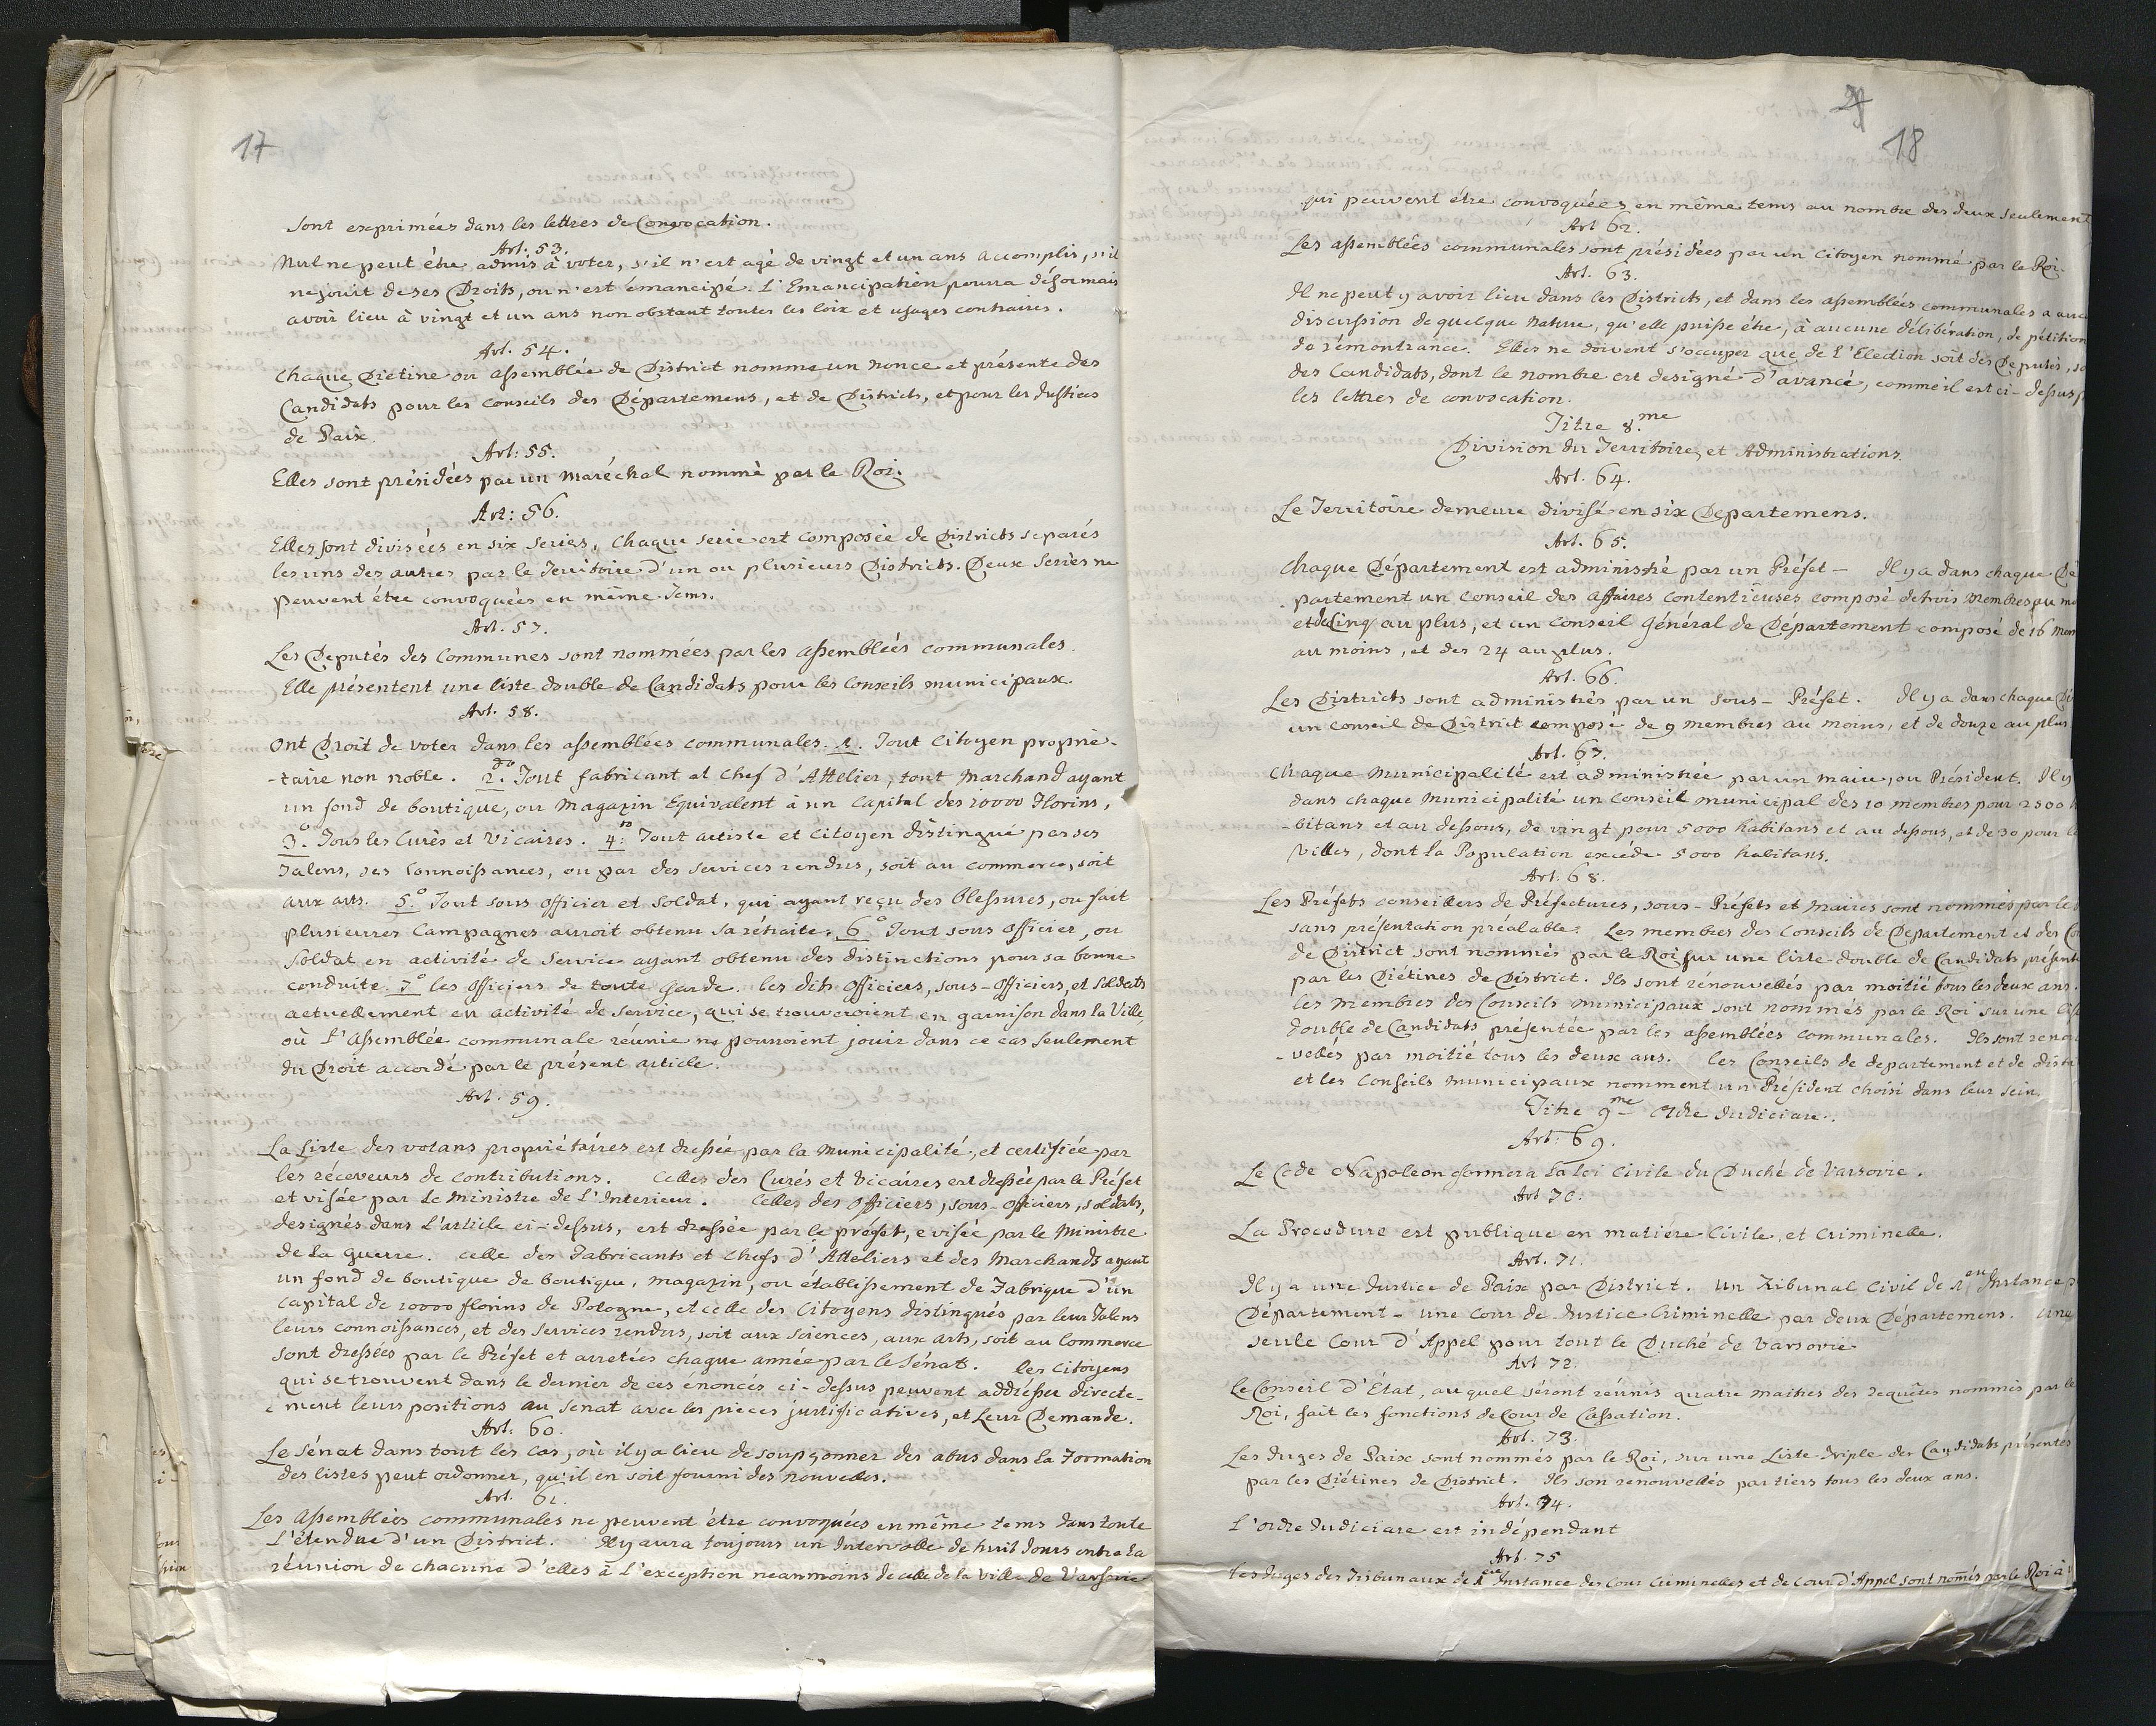 17
sont exprimées dans les lettres de Convocation.
Art. 53.
Nul ne peut être admis à voter, s'il n'est agé de vingt et un ans accomplis, s'il
ne jouit de ses Droits, ou n'est émancipé. L'Emancipation pourra désormais
avoir lieu à vingt et un ans non obstant toutes les loix et usages contraires.
Art. 54.
Chaque Diétine ou assemblée de District nomme un Nonce et présente des
Candidats pour les Conseils des Départemens, et de Districts, et pour les Justices
de Paix.
Art: 55.
Elles sont présidées par un Maréchal nommé par le Roi.
Art: 56.
Elles sont divisées en six series, chaque serie est composée de Districts separés
les uns des autres par le Territoire d'un ou plusieurs Districts. Deux Series ne
peuvent être convoquées en même tems.
Art. 57.
Les Deputés des Communes sont nommées par les assemblées communales.
Elle présentent une liste double de Candidats pour les Conseils municipaux.
Art. 58.
Ont Droit de voter dans les assemblées communales. 1. Tout Citoyen proprié-
-taire non noble. 2do. Tout fabricant et Chef d'Attelier, tout Marchand ayant
un fond de boutique, ou Magazin Equivalent à un Capital des 10000 Florins,
3o. Tous les Curés et Vicaires. 4to. Tout artiste et Citoyen distingué par ses
Talens, ses Connoissances, ou par des services rendus, soit au commerce, soit
aux arts. 5o. Tout sous officier et Soldat, qui ayant reçu des Blessures, ou fait
plusieures Campagnes auroit obtenu sa rétraite. 6o Tout sous officier, ou
Soldat en activité de Service ayant obtenu des distinctions pour sa bonne
conduite. 7o les officiers de toute Garde. les dits officiers, sous-officiers, et Soldats
actuellement en activité de Service, qui se trouveroient en garnison dans la Ville,
où l'assemblée communale réunie ne pourroient jouir dans ce cas seulement
du Droit accordé par le présent article.
Art. 59.
La Liste des votans propriétaires est dressée par la Municipalité, et certifiée par
les réceveurs de contributions. Celles des Curés et Vicaires est dressée par le Préfet
et visée par le Ministre de l'Interieur. Celles des officiers, sous-officiers, soldats,
designés dans l'article ci-dessus, est dressée par le préfet, e visée par le Ministre
de la guerre. celle des Fabricants et chefs d'Atteliers et des Marchands ayant
un fond de boutique de boutique, magazin, ou établissement de Fabrique d'un
Capital de 10000 florins de Pologne, et celle des Citoyens distingués par leur Talens
leurs connoissances, et des Services rendus, soit aux Sciences, aux arts, soit au Commerce
sont dressées par le Préfet et arretées chaque année par le Sénat. les Citoyens
qui se trouvent dans le dernier de ces énoncés ci-dessus peuvent addresser directe-
ment leurs positions au Senat avec les pieces justificatives, et leur Demande.
Art. 60.
Le Sénat dans tout les cas, où il y a lieu de soupçonner des abus dans la Formation
des listes peut ordonner, qu'il en soit fourni des nouvelles.
Art. 61.
Les Assemblées communales ne peuvent être convoquées en même tems dans toute
l'étendue d'un District. Il y aura toujours un Intervalle de huit Jours entre la
réunion de chacune d'elles à l'exception neanmoins de celle de la Ville de Varsovie
18
qui peuvent être convoquées en même tems au nombre des deux seulement
Art 62.
Les assemblées communales sont présidées par un Citoyen nommé par le Roi.
Art. 63.
Il ne peut y avoir lieu dans les Districts, et dans les assemblées communales a aucu
discussion de quelque Nature, qu'elle puisse être, à aucune délibération, de pétition
de rémontrance. Elles ne doivent s'occuper que de l'Election soit des Deputés, so
des Candidats, dont le Nombre est designé d'avance, comme il est ci-dessus p
les lettres de convocation.
Titre 8.me
Division du Territoire, et Administrations.
Art. 64.
Le Territoire demeure divisé en six Departemens.
Art. 65.
Chaque Département est administré par un Préfet – Il y a dans chaque Dé
partement un Conseil des affaires Contentieuses composé de trois Membres au mo
et de Cinq au plus, et un Conseil Général de Département composé de 16 Mem
au moins, et des 24 au plus.
Art. 66.
Les Districts sont administrés par un Sous-Préfet. Il y a dans chaque Di
un Conseil de District composé de 9 membres au moins, et de douze au plus
Art. 67.
Chaque Municipalité est administrée par un maire, ou Président. Il y
dans chaque Municipalité un Conseil municipal des 10 membres pour 2500 h
-bitans et au dessous, de vingt pour 5000 habitans et au dessous, et de 30 pour le
Villes, dont la Population excéde 5000 habitans.
Art. 68.
Les Préfets conseillers de Préfectures, sous-Préfets et Maires sont nommés par le
sans présentation préalable. Les membres des Conseils de Departement et des Co
de District sont nommés par le Roi sur une liste double de Candidats présent
par les Diétines de District. Ils sont rénouvellés par moitié tous les deux ans.
les Membres des Conseils Municipaux sont nommés par le Roi sur une list
double de Candidats présentée par les assemblées communales. Ils sont renou
-vellés par moitié tous les deux ans. les Conseils de departement et de distri
et les Conseils Municipaux nomment un Président choisi dans leur sein.
Titre 9me – Ordre Judiciare.
Art. 69.
Le Code Napoleon formera la loi Civile du Duché de Varsovie.
Art 70.
La Procedure est publique en matière Civile, et Criminelle.
Art. 71.
Il y a une Justice de Paix par District. Un Tribunal Civil de 1ere Instance p
Département – une Cour de Justice Criminelle par deux Départemens. Une
seule Cour d'Appel pour tout le Duché de Varsovie
Art 72.
Le Conseil d'État, auquel séront réunis quatre maitres des requêtes nommés par le
Roi, fait les fonctions de Cour de Cassation.
Art. 73.
Les Juges de Paix sont nommés par le Roi, sur une Liste triple des Candidats présentés
par les Diétines de District. Ils son renouvellés par tiers tous les deux ans.
Art. 74.
L'ordre Judiciare est indépendant
Art. 75
Les Juges des Tribunaux de 1ere Instance des Cour Criminelles et de Cour d'Appel sont només par le Roi à